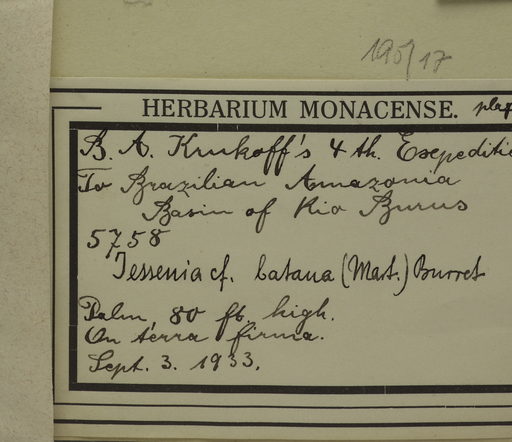 195/17
HERBARIUM MONACENSE.
B. A. Krukoff's 4 th. Exepeditio
To Brazilian Amazonia
Basin of Rio Burus
5758
Jessenia cf. batana (Mart.) Burret
Palm, 80 ft. high.
On terra firma.
Sept. 3. 1933.